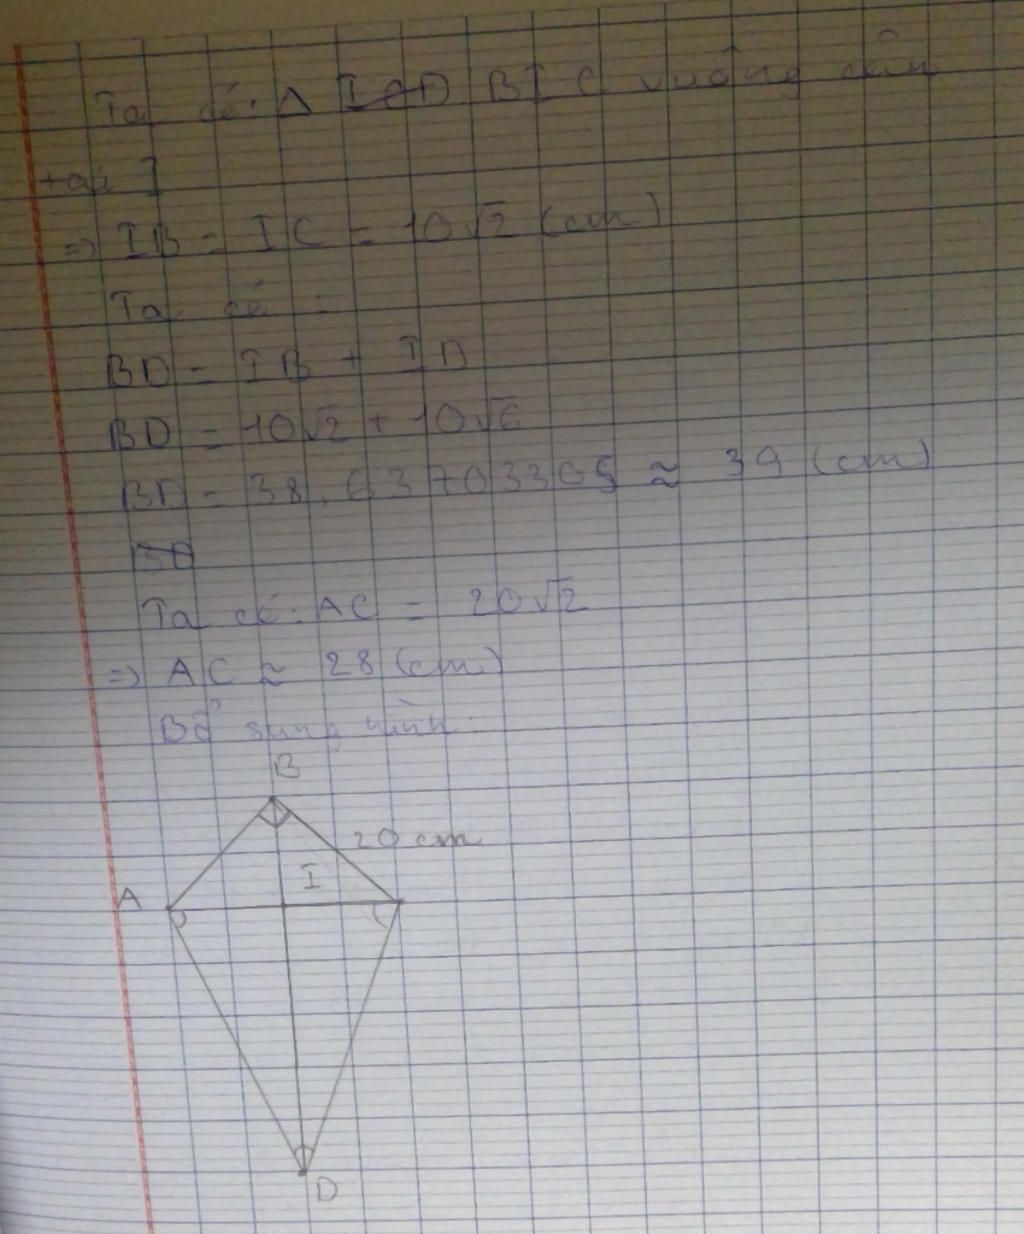 Ta có: Δ BIC vuông cân
tại I
=> IB = IC = 10√2 (cm)
Ta có :
BD = IB + ID
BD = 10√2 + 10√6
BD = 38,63703305 ≈ 39 (cm)
Ta có: AC = 20√2
=> AC ≈ 28 (cm)
Bổ sung hình:
B
20 cm
I
A
D